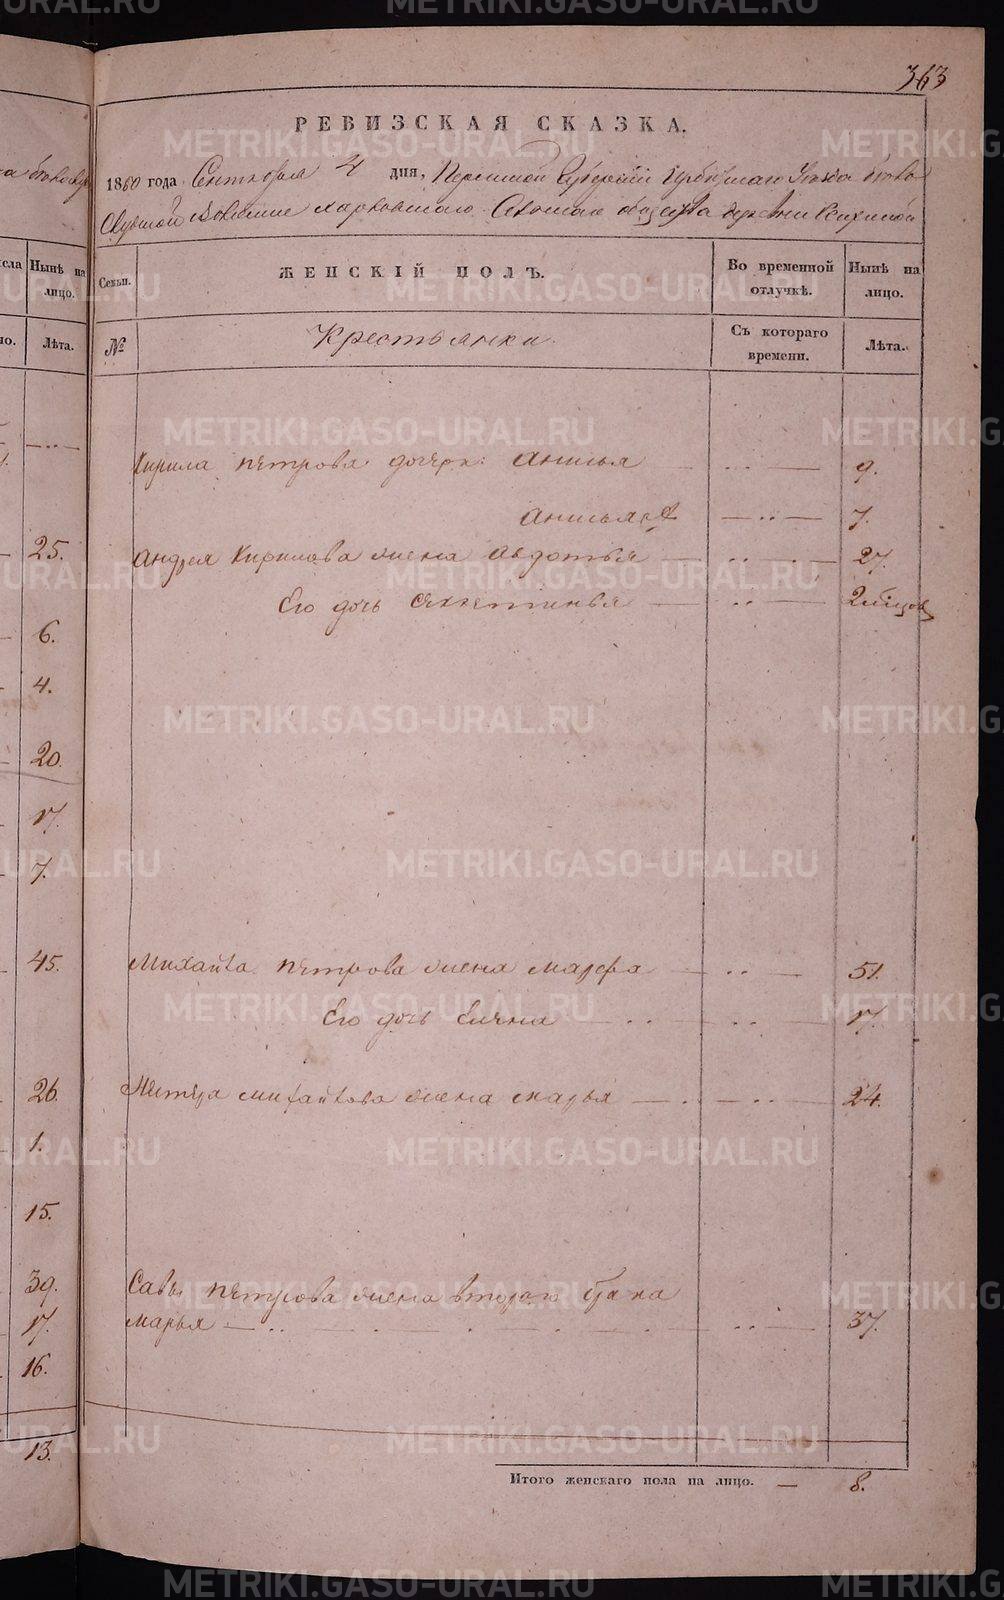 363
РЕВИЗСКАЯ СКАЗКА.
1860 года Сентября 4 дня, Пермской Губернии Ирбитскаго Уезда
Волости Харловскаго Сельскаго общества деревни
Семьи. ЖЕНСКІЙ ПОЛЪ. Во временной отлучкѣ. Нынѣ на лицо.
№ Крестьянки Съ котораго времени. Лѣта.
Кирила петрова дочери: Анисья — ·· — 9.
Анисья — ·· — 7.
Андрея Кирилова жена Авдотья — ·· — 27.
Его дочь — ·· — 2
Михайла петрова жена Марфа — ·· — 51.
Его дочь Елена — ·· — 17.
Петра михайлова жена марья — ·· — 24.
Савы петрова жена втораго брака
марья — ·· — 37.
Итого женскаго пола на лицо. — 8.
сла Нынѣ на лицо.
но. Лѣта.
25.
6.
4.
20.
17.
7.
45.
26.
1.
15.
39.
17.
16.
13.
METRIKI.GASO-URAL.RU